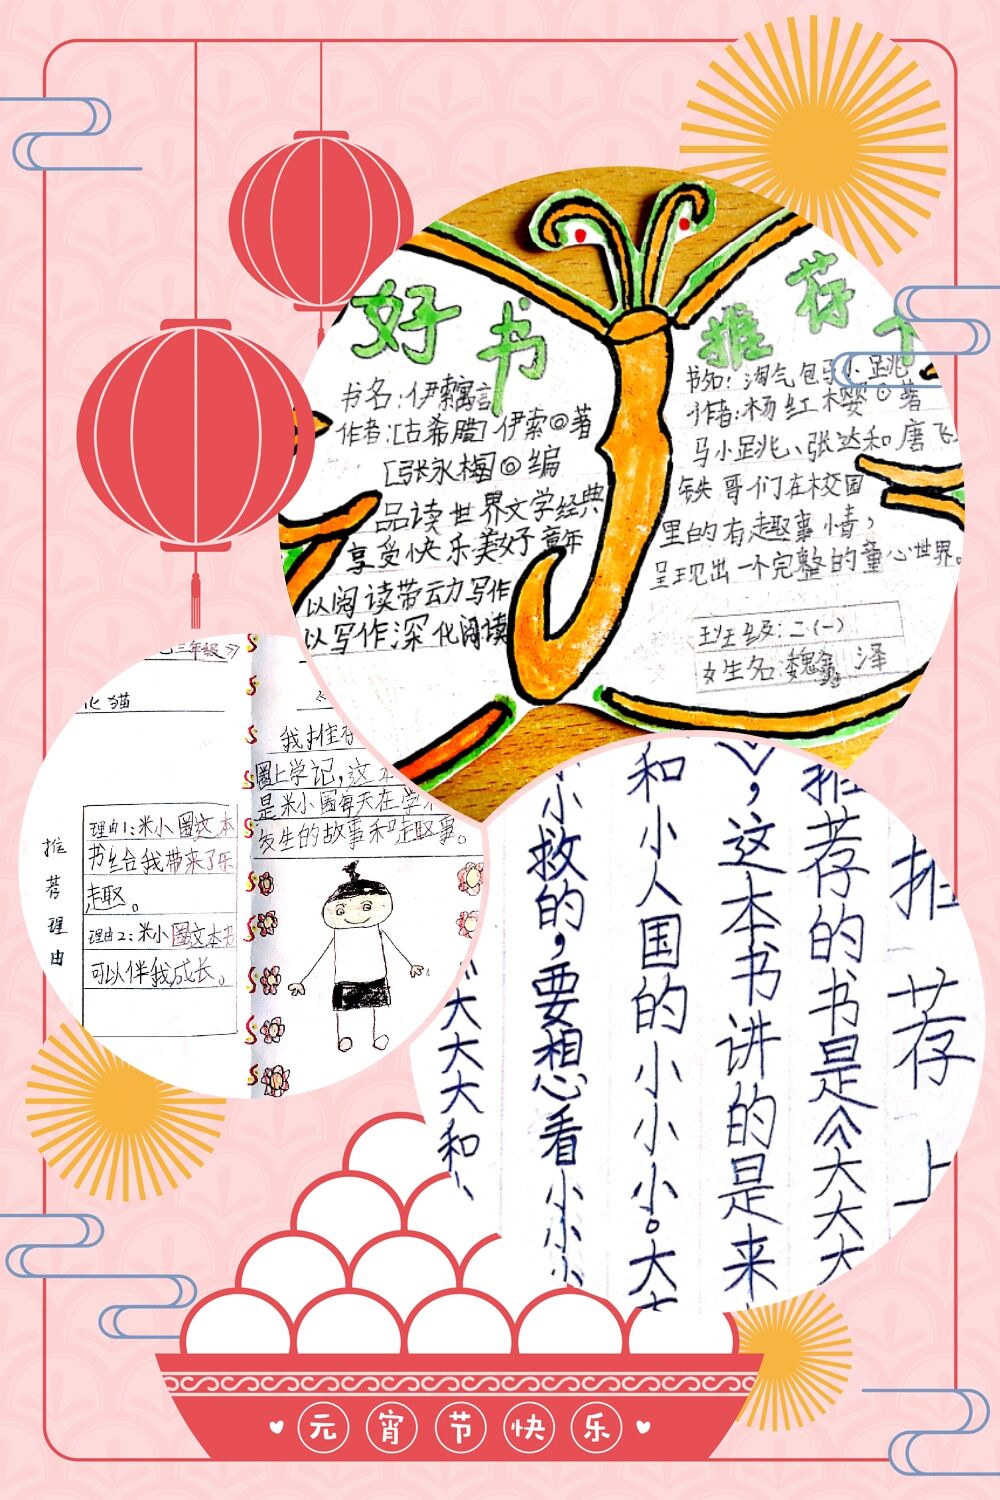 好书
书名:伊索寓言
作者:[古希腊]伊索◎著
[张永梅]◎编
品读世界文学经典
享受快乐美好童年
以阅读带动力写作
以写作深化阅读
推荐
书名:淘气包马小跳
作者:杨红樱◎著
马小跳、张达和唐飞
铁哥们在校园
里的有趣事情,
呈现出一个完整的童心世界。
班级:二(一)
女生名:魏鑫泽
三年级》
化猫
推荐理由
理由1:米小圈这本
书给我带来了乐
趣。
理由2:米小圈这本书
可以伴我成长。
我推荐
圈上学记,这
是米小圈每天在学
发生的故事和趣事。
推荐上
推荐的书是《大大大
》,这本书讲的是来
和小人国的小小小。大
小救的,要想看小小小
《大大大大和小
元宵节快乐